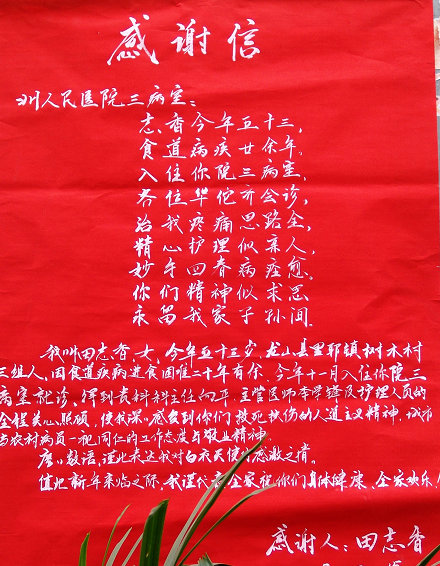 感谢信
州人民医院三病室：
志香今年五十三，
食道病疾廿余年。
入住你院三病室，
各位华佗齐公诊，
治我疼痛思路全，
精心护理似亲人，
妙手回春病症愈。
你们精神似求恩
永留我家子孙间。
我叫田志香，女，今年五十三岁，龙山县里耶镇树木村
三组人，因食道疾病进食困难二十年有余，今年十一月入住你院三
病室就诊，得到贵科科主任向平、主管医师 及护理人员的
全程关心、照顾，使我深感受到你们救死扶伤的人道主义精神，城市
与农村病员一视同仁的工作态度与敬业精神。
谨此表达我对白衣天使的感激之情。
值此新年来临之际，我谨代表全家祝你们身体健康、全家欢乐
感谢人：田志香